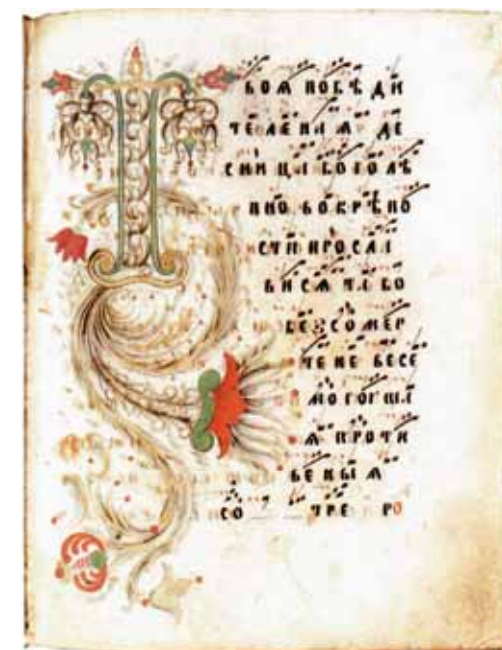 Т ВОѦ ПОБѢДИ
ТЕЛЕНАѦ ДЕ
СНИЦА БОГОЛѢ
ПНО ВО КРѢПО
СТИ ПРОСЛА
ВИСѦ ТА БО
БЕЗСОМЕР
ТЕНЕ ВЕСЕ
МОГОЩІ
Ѧ ПРОТИ
ВЕНЫѦ
СО ТРЕ